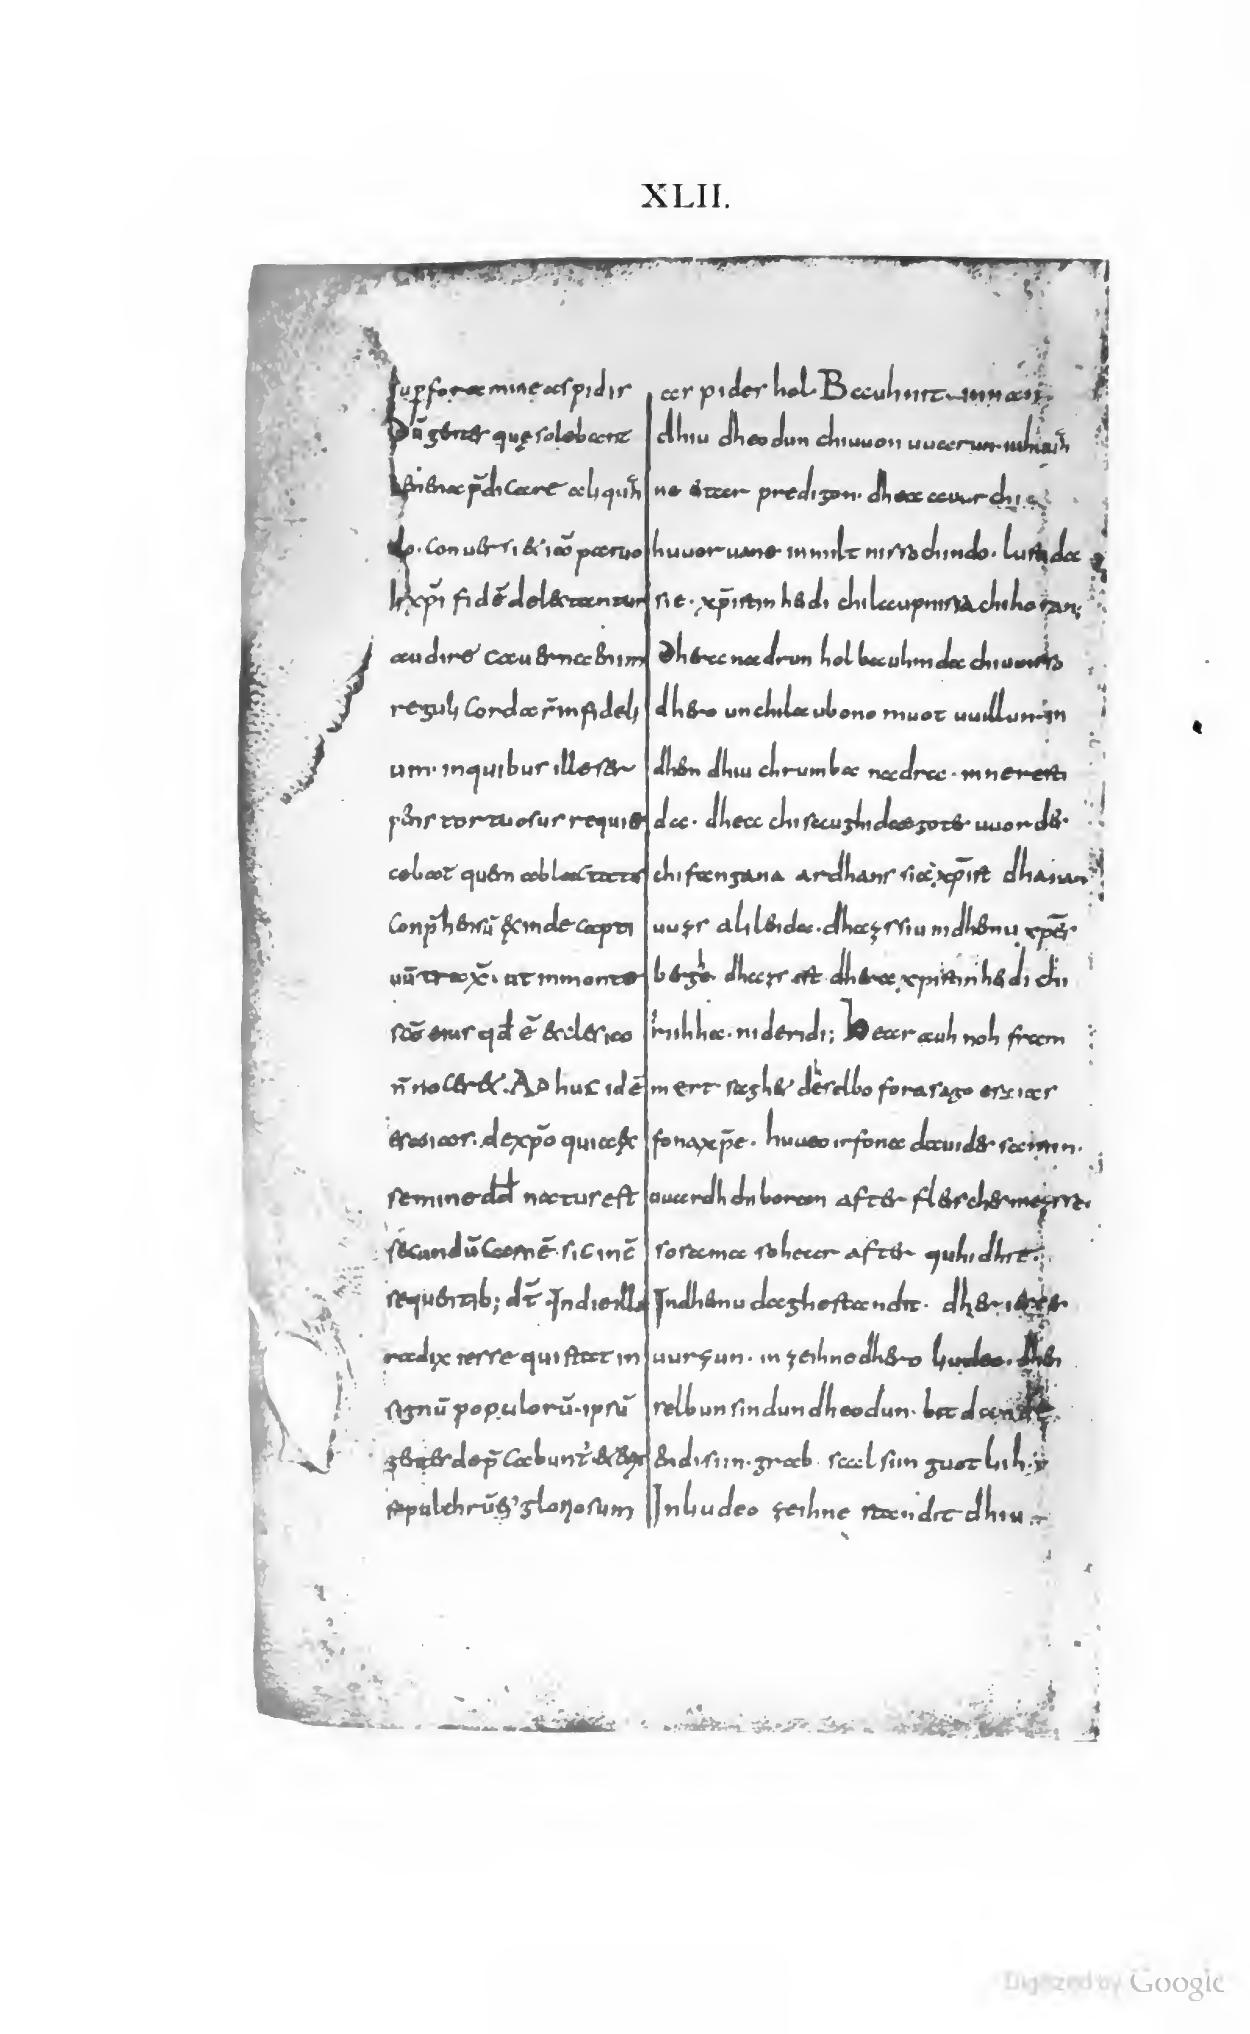 sup foramine aspidis
Dū gentes quę solebant
uenena p̄dicare aliquñ
do. Conuersi & iā paruo
li xp̄i fidē delectantur
audire cauernae enim
reguli Corda s̄ infideli
um. in quibus ille ser
pens tortuosus requies
cebat quem ablactatus
Conp̄hensū exinde capti
uū trax̄. ut in monte
scō eius qd̄ ē ecclesia
n̄ nocer&. Adhuc idē
esaias. de xp̄o quia ex
semine dd̄ natus est
secundū Carnē. sic in
sequentib; dt̄. In die illa
radix iesse qui stat in
signū populorū. ipsū
gentes dep̄cabunt̄. & erit
sepulchrū ei' gloriosum
aspides hol. Bauhnit
dhiu dheodun chiuuon uuarun.
ne eitar predigon. dhea auur chi
huuoruane in miltnissa chindo. lustida
sie. xp̄istinheidi chilaupnissa chihoran;
Dhera nadrun hol bauhnida chiuuisso
dhero unchilaubono muot uuillun. in
dhen dhiu chrumba nadra. inneresti
da. dhea chisaughida gote uuorde
chifangana ardhans sia xp̄ist dhanan
uuzs alileida. dhazs siu in dhemu xp̄es
berge. dhazs ist dhera xp̄istinheidi chi
rihha. ni deridi; hear auh noh fram
mert saghet der selbo forasago esaias
fona xp̄e. huueo ir fona dauides samin.
uuardh chiboran after fleisches mezsse.
so sama so hear after quhidhit.
In dhemu daghe standit. dher iesses
uurzun. in zeihne dhero liudeo. dhei
selbun sindun dheodun. bit dande.
endi siin. grab scal siin guotliih.
In liudeo zeihne standit dhiu